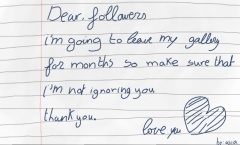 Dear, followers
i'm going to leave my gallery
for months so make sure that
i'm not ignoring you
thank you.
love you
by: